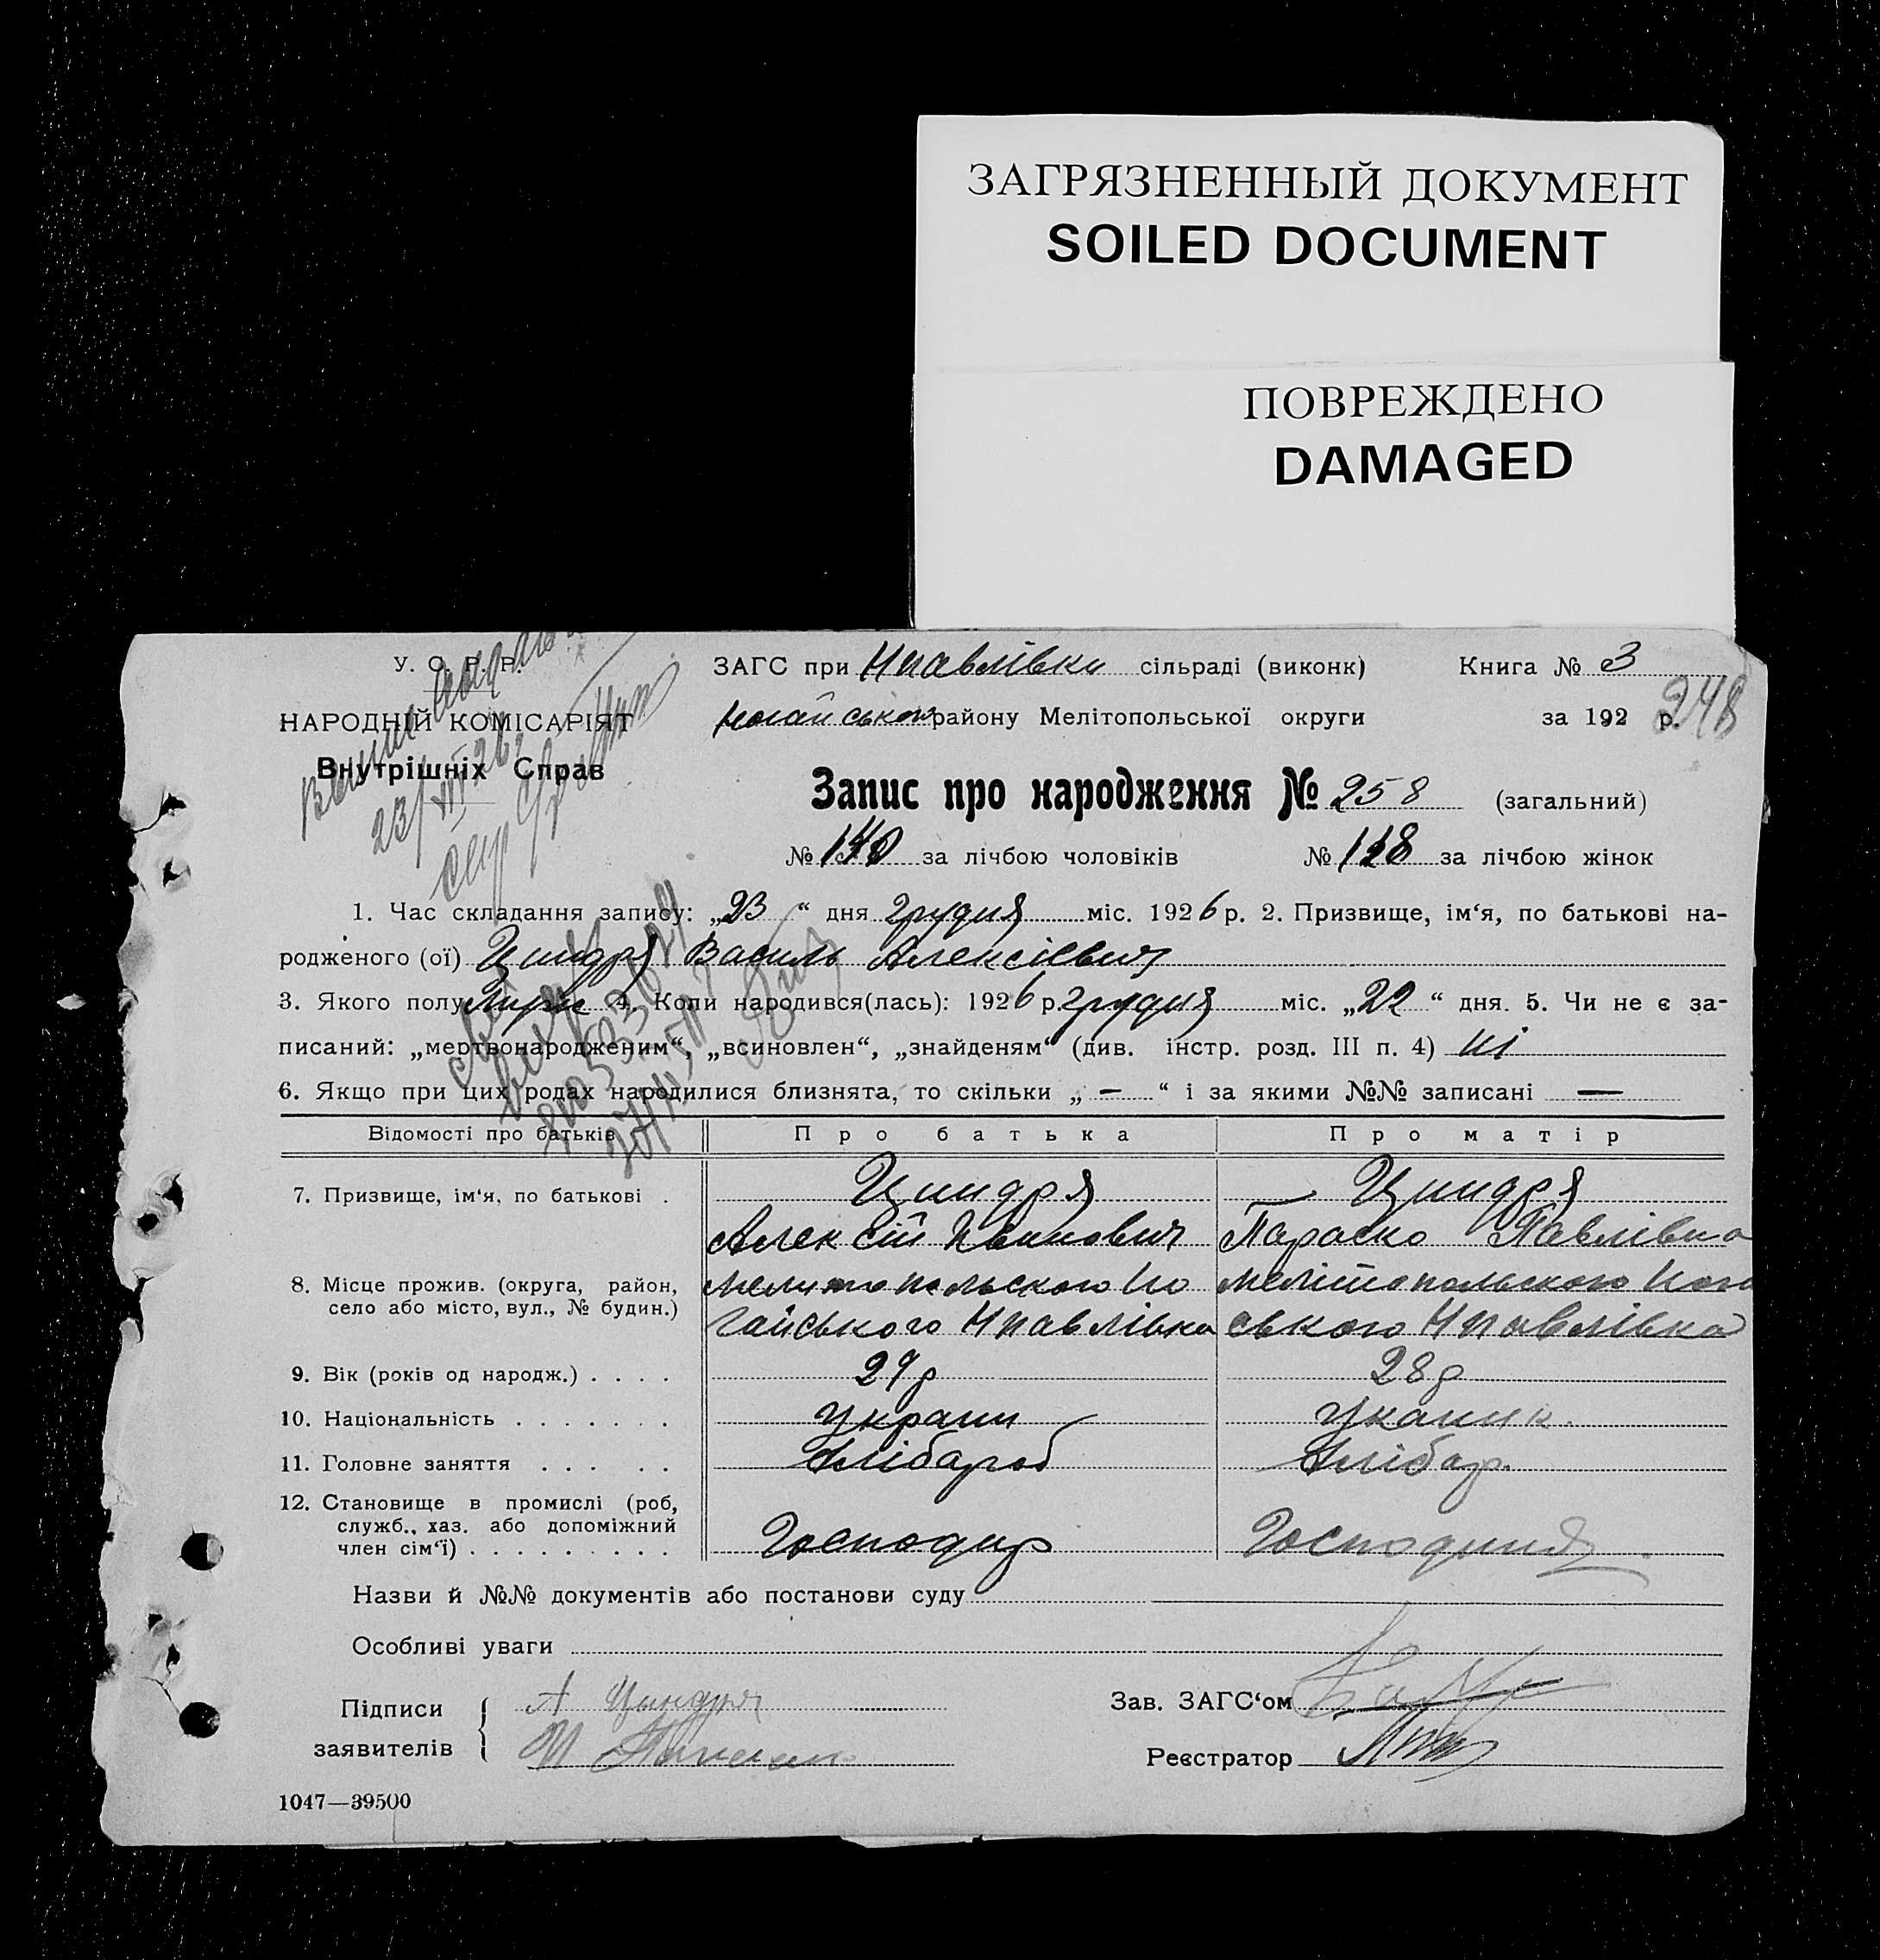 ЗАГРЯЗНЕННЫЙ ДОКУМЕНТ
SOILED DOCUMENT
ПОВРЕЖДЕНО
DAMAGED
У. С. Р. Р.
НАРОДНІЙ КОМІСАРІЯТ
Внутрішніх Справ
23/XII 26
ЗАГС при Нпавлівки сільраді (виконк) Книга № 3
ногайського району Мелітопольської округи за 192 р.
248
Запис про народження № 258 (загальний)
№ 140 за лічбою чоловіків № 118 за лічбою жінок
1. Час складання запису: „23“ дня грудня міс. 1926 р. 2. Призвище, ім‘я, по батькові на-
родженого (ої) Циндря Василь Алексієвич
3. Якого полу 4. Коли народився(лась): 1926 р. грудня міс. „22“ дня. 5. Чи не є за-
писаний: „мертвонародженим“, „всиновлен“, „знайденям“ (див. інстр. розд. III п. 4) ні
6. Якщо при цих родах народилися близнята, то скільки „ — “ і за якими №№ записані —
Відомості про батьків Про батька Про матір
7. Призвище, ім‘я, по батькові . Циндря Циндря
Алексій Іванович Параско Павлівна
8. Місце прожив. (округа, район, село або місто, вул., № будин.) Мелитопольского Но Мелітопольского Нога
гайського Нпавлівка ського Нпавлівка
9. Вік (років од народж.) . . . . 29р 28р
10. Національність . . . . . . . украин укаинк.
11. Головне заняття . . . . . Хлібароб Хлібар.
12. Становище в промислі (роб,
служб., хаз. або допоміжний
член сім‘ї) . . . . . . . . . Господар Господиня
Назви й №№ документів або постанови суду
Особливі уваги
Підписи заявителів { А Цындря
Зав. ЗАГС‘ом
Реєстратор
1047—39500